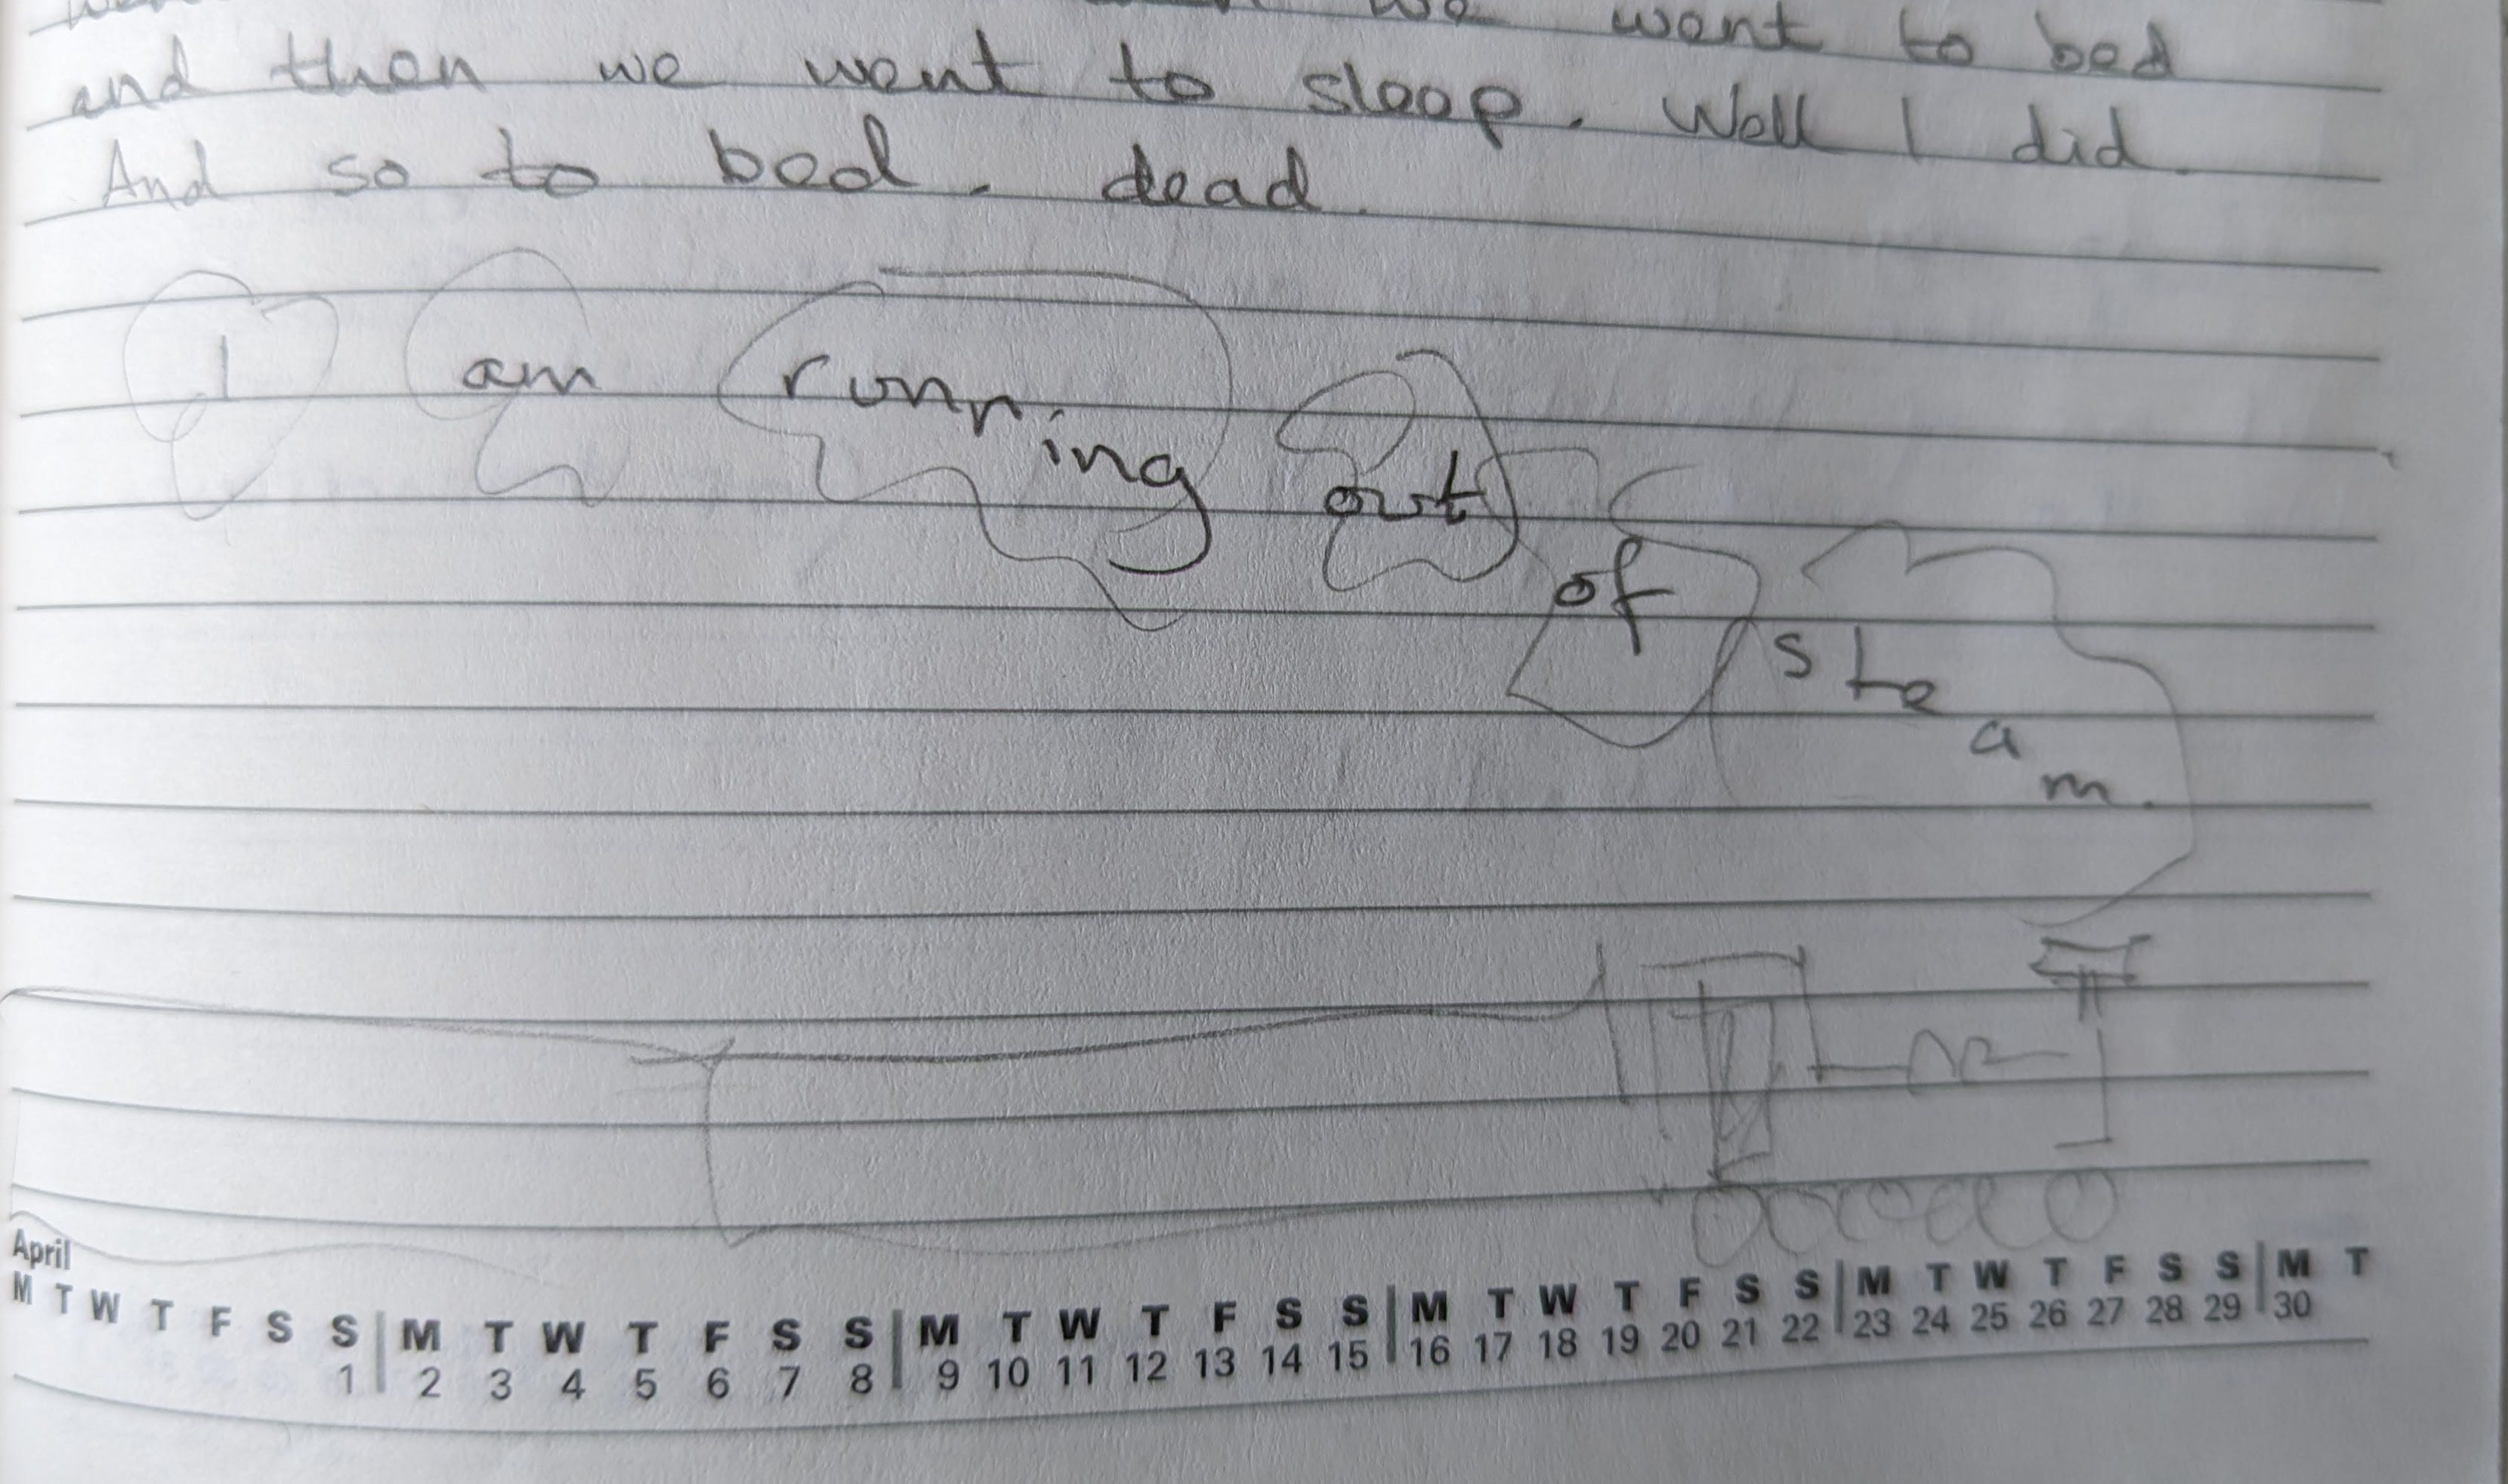 we went to bed
and then we went to sleep. Well I did.
And so to bed. dead.
I am running out of steam.
April
M T W T F S S M T W T F S S M T W T F S S M T W T F S S M T W T F S S M T
1 2 3 4 5 6 7 8 9 10 11 12 13 14 15 16 17 18 19 20 21 22 23 24 25 26 27 28 29 30